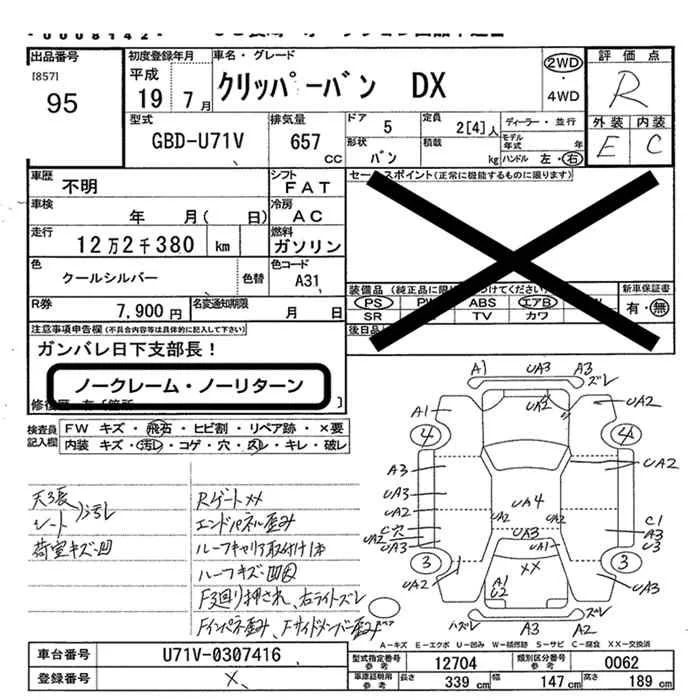 出品番号
[857]
95
初度登録年月
平成
19 7月
車名・グレード
クリッパーバン DX
2WD
・
4WD
評価点
R
外装 内装
E C
型式
GBD-U71V
排気量
657
CC
ドア 5
定員 2[4]人
ディーラー・並行
形状 バン
積載 kg
モデル年式 年
ハンドル 左・右
車歴 不明
シフト FAT
車検 年 月( 日)
冷房 AC
走行 12万2千380 km
燃料 ガソリン
色 クールシルバー 色替
色コード A31
R券 7,900円
名変通知期限 月 日
セールスポイント(正常に機能するものに限ります)
装備品
PS ABS エアB
SR TV カワ
新車保証書
有・無
注意事項申告欄(不具合内容等は具体的に記入して下さい)
ガンバレ日下支部長!
ノークレーム・ノーリターン
検査員記入欄
FW キズ・飛石・ヒビ割・リペア跡・×要
内装 キズ・汚レ・コゲ・穴・スレ・キレ・破レ
天3張
シート 汚レ
荷室キズ・凹
Rゲート××
エンドパネル歪み
ルーフキャリア取付け
ルーフキズ・凹
F3廻り押され、右ライトズレ
Fインパネ歪み、Fサイドメンバー歪み
A1 UA3 A3
ズレ
UA2
A1 UA2
4 4
A3 UA2
UA3
UA2 UA2 UA4 UA2
C穴 C1
UA2 UA3 A3
UA3 UA1 U3
3 ×× 3
UA2 A1 UA3
U2
ハズレ A3 A2 ズレ
A-キズ E-エクボ U-凹み W-補修跡 S-サビ C-腐食 XX-交換済
車台番号 U71V-0307416
登録番号 ×
型式指定番号 参考 12704
類別区分番号 参考 0062
車庫証明用 参考 長さ 339cm 幅 147cm 高さ 189cm